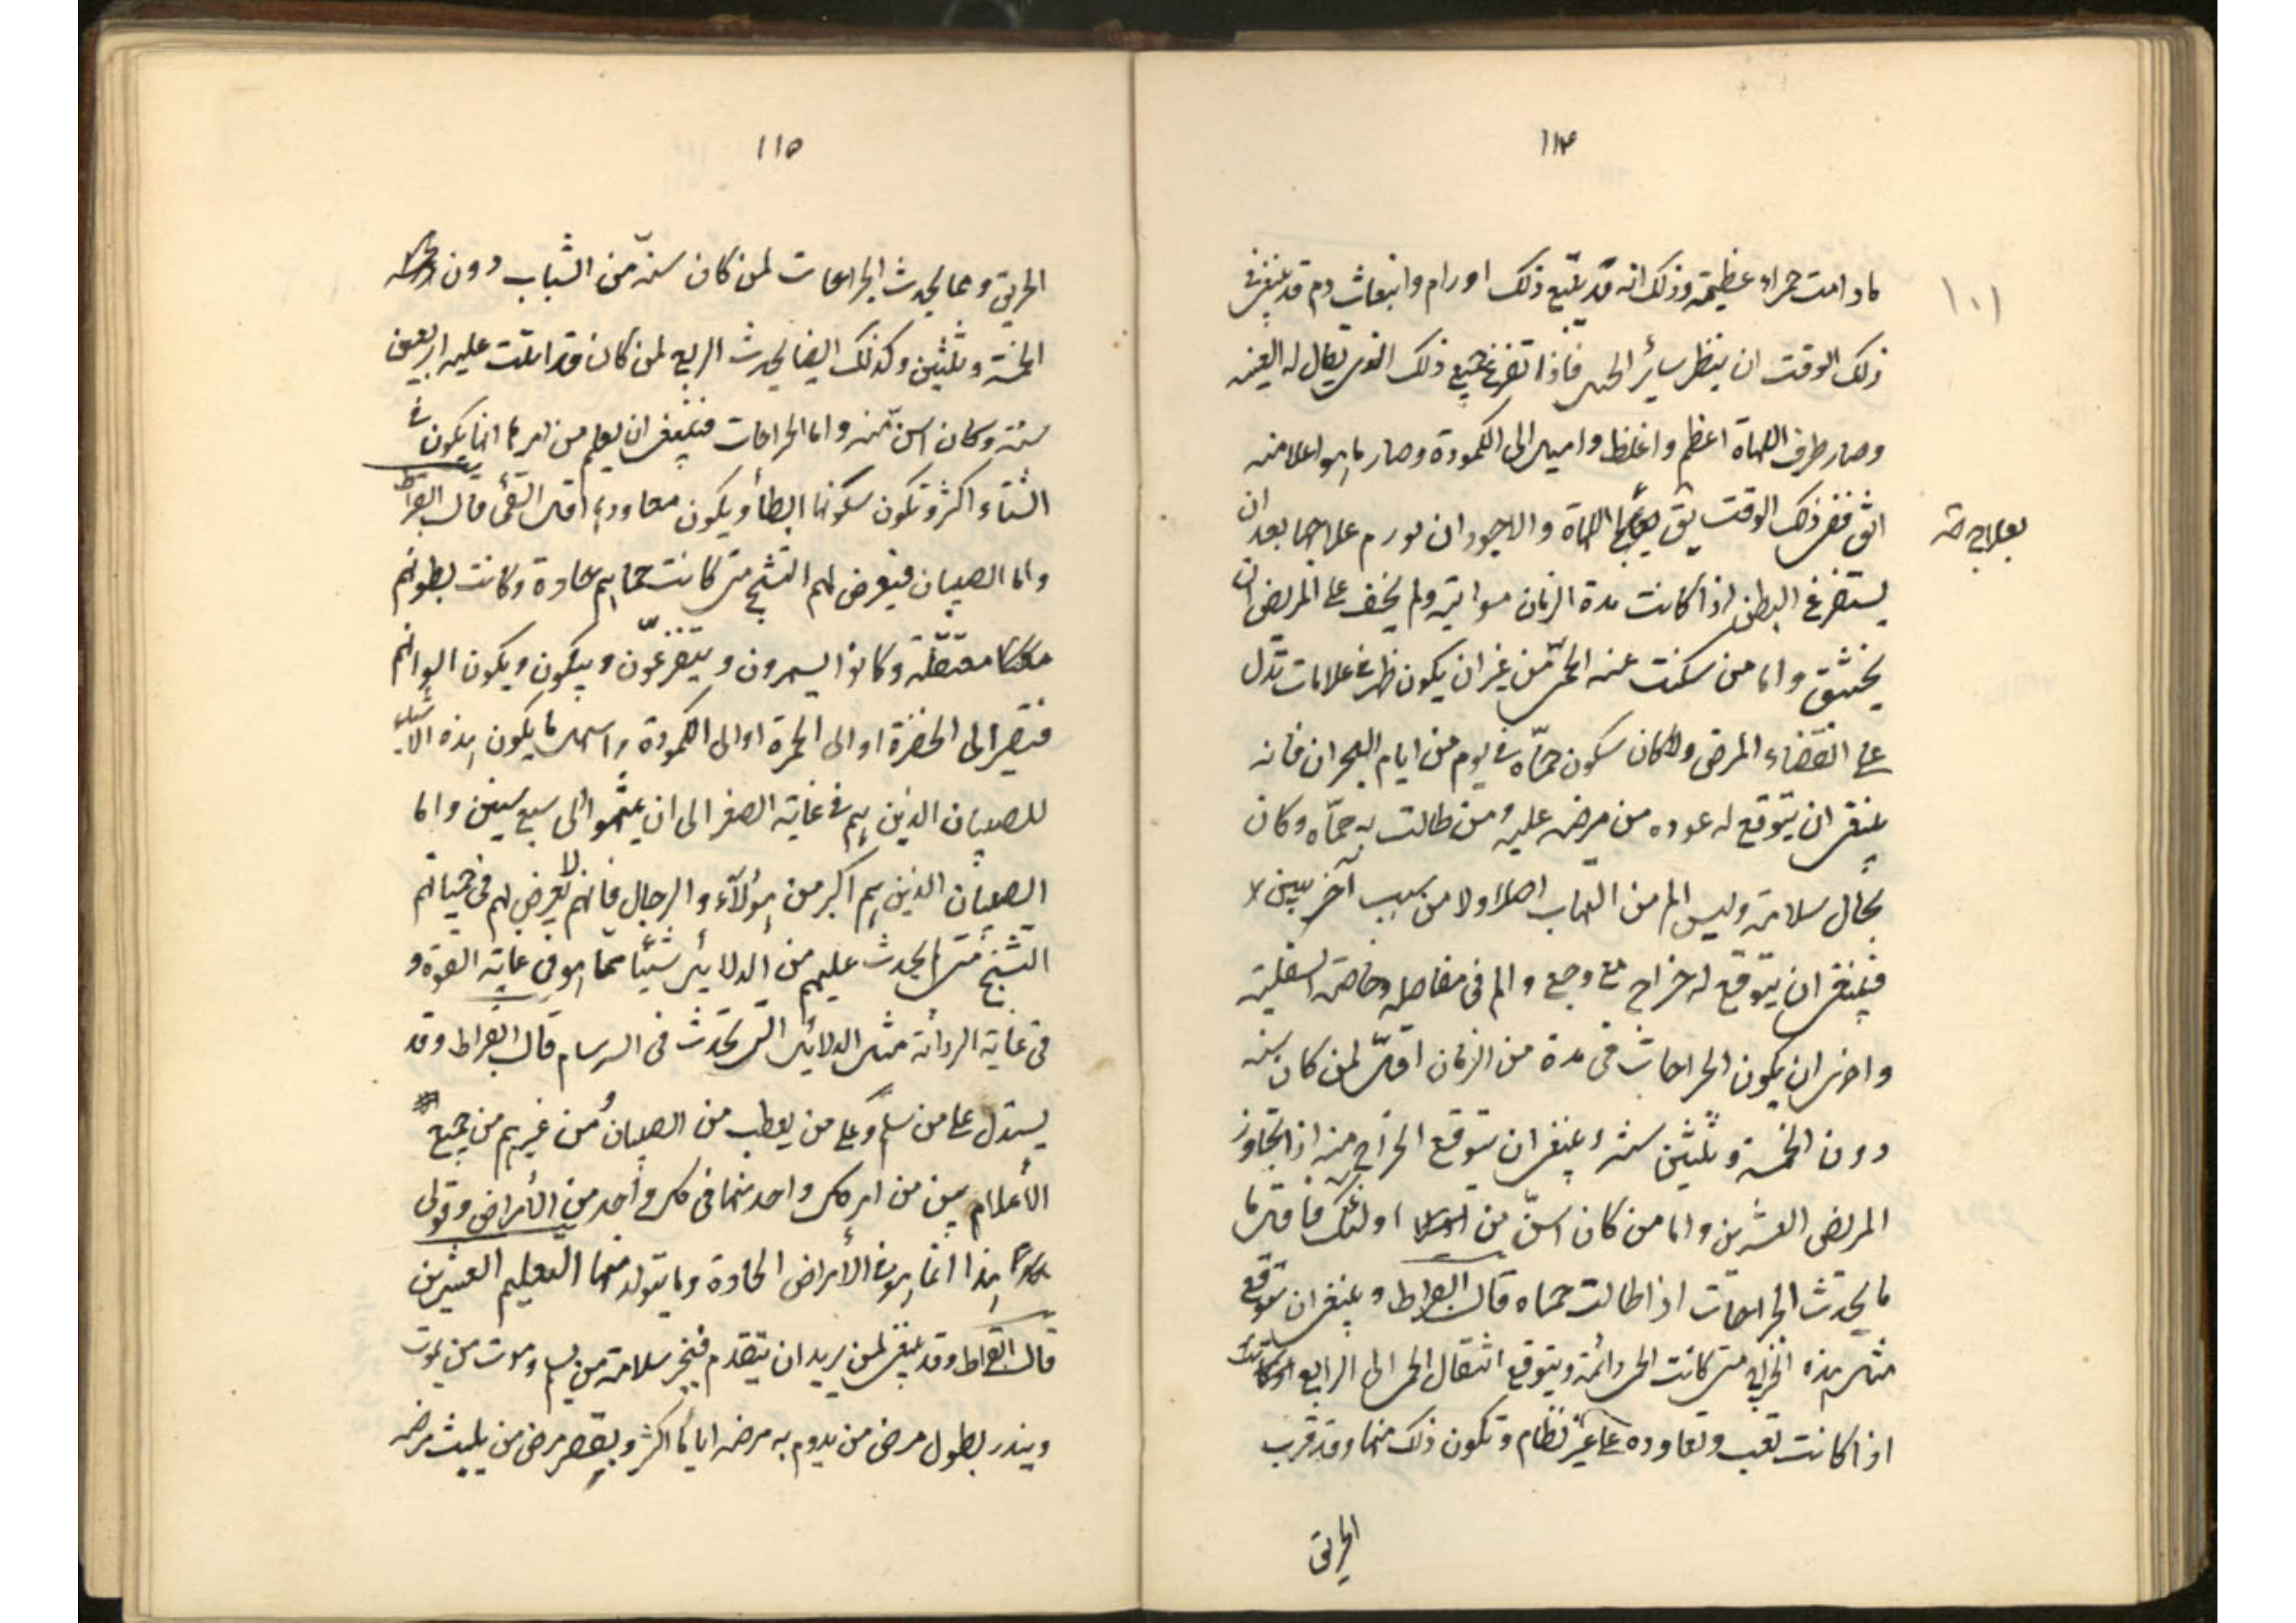 ١١٤
١٠١
مادامت حمراء عظيمة وذلك انه قد يتبع ذلك اورام وانبعاث دم قد ينبغى فى
ذلك الوقت ان ينظر سائر الحيل فاذا تفرغ جميع ذلك الذى يقال له العنبه
وصار طرف اللهاة اعظم واغلظ واميل الى الكمودة وصار ما هو اعلا منه
ارق ففى ذلك الوقت يثق بعلاج اللهاة والاجود ان يورم علاجها بعد ان
بعلاج صح
يستفرغ البطن اذا كانت مدة الزمان مواتية ولم يخف على المريض ان
يختنق واما من سكنت عنه الحمى من غير ان يكون ظهر فيه علامات تدل
على انقضاء المرض ولا كان سكون حماه فى يوم من ايام البحران فانه
ينبغى ان يتوقع له عوده من مرض عليه ومن طالت به حماه وكان
بحال سلامة وليس الم من التهاب اصلا ولا من سبب آخر بين
فينبغى ان يتوقع له خراج مع وجع والم فى مفاصله وخاصة السفلية
واحرى ان يكون الخراجات فى مدة من الزمان اقل لمن كان سنه
دون الخمسة وثلثين سنة وينبغى ان يتوقع الخراج منه اذا تجاوز
المريض العشرين واما من كان اسن من اولئك فاقل ما
ما يحدث الخراجات اذا طالت حماه قال ابقراط وينبغى ان يتوقع
مثل هذه الخراج متى كانت الحمى دائمة ويتوقع انتقال الحمى الى الرابع
اذا كانت تغب وتعاوده على غير نظام وتكون ذلك منها وقد قرب
الخريق
١١٥
الخريق وما يحدث الخراجات لمن كان سنه من الشباب دون
الخمسة وثلثين وكذلك ايضا يحدث الربع لمن كان قد اتت عليه اربعين
سنة وكان اسن منه واما الخراجات فينبغى ان يعلم من امرها انها يكون فى
الشتاء اكثر وتكون سكونها ابطأ ويكون معاودتها اقل النقى قال ابقراط
واما الصبيان فيعرض لهم التشنج متى كانت حماهم حادة وكانت بطونهم
معتقلة وكانوا يسهرون ويتفزعون ويبكون ويكون الوانهم
فتصير الى الخضرة او الى الحمرة او الى الكمودة واسهل ما يكون هذه الاشياء
للصبيان الذين هم فى غاية الصغر الى ان ينتهوا الى سبع سنين واما
الصبيان الذين هم اكبر من هؤلآء والرجال فانهم لا يعرض لهم فى حمياتهم
التشنج متى لم يحدث عليهم من الدلايل شيئا مما هو فى غاية القوة و
فى غاية الردائة مثل الدلايل التى تحدث فى السرسام قال ابقراط وقد
يستدل على من يسلم وعلى من يعطب من الصبيان ومن غيرهم من جميع
الأعلام بين من امر كل واحد منها فى كل واحد من الأمراض وقولى
هذا انما هو فى الأمراض الحادة وما يتولد منها التعليم العشرين
قال ابقراط وقد ينبغى لمن يريد ان يتقدم فيخبر سلامة من يسلم وموت من يموت
وينذر بطول مرض من يدوم به مرضه اياما اكثر ويقصر مرض من يلبث مرضه